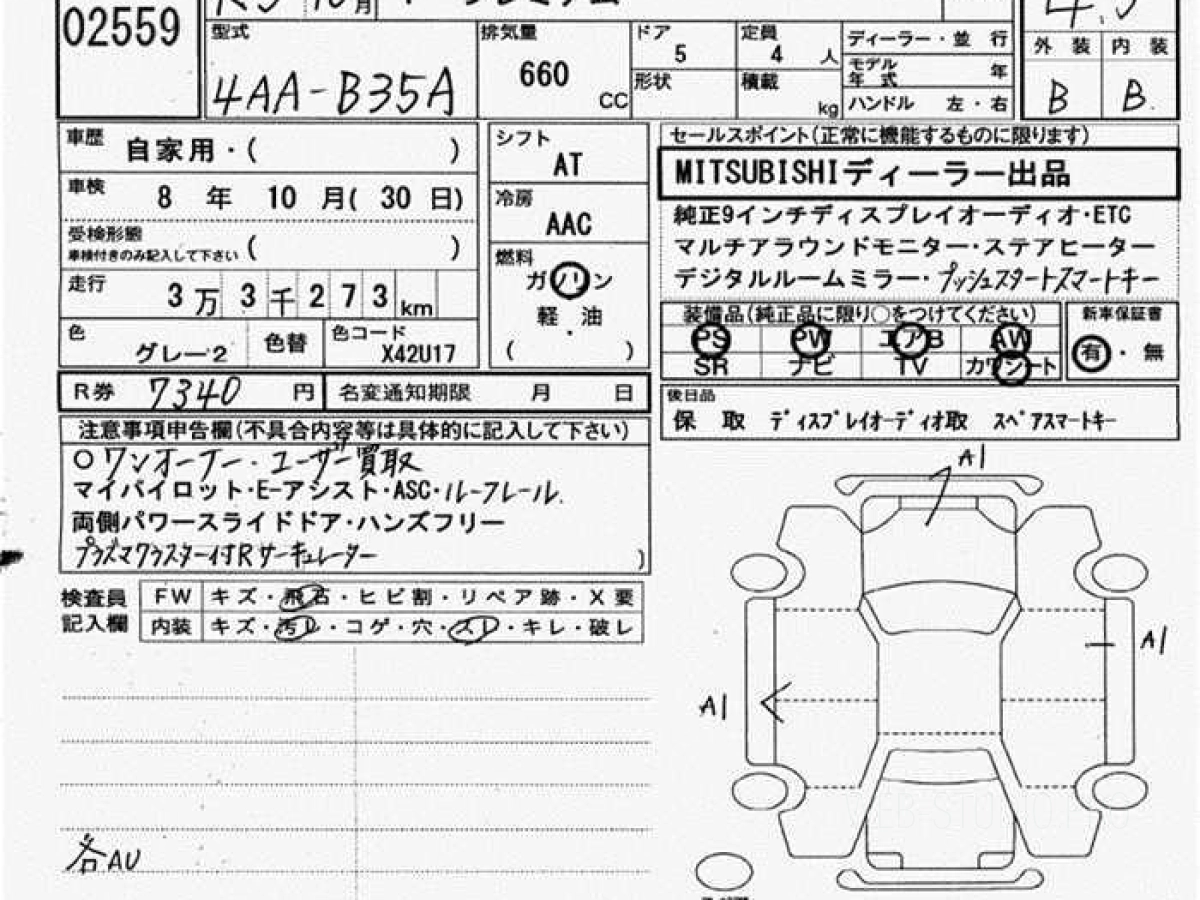 02559
型式
4AA-B35A
排気量
660
CC
ドア
5
形状
定員
4 人
積載
kg
ディーラー・並 行
モデル
年 式 年
ハンドル 左・右
外 装 内 装
B B
車歴
自家用・( )
車検
8 年 10 月( 30 日)
受検形態
車検付きのみ記入して下さい ( )
走行
3 万 3 千 2 7 3 km
色
グレー2
色替
色コード
X42U17
シフト
AT
冷房
AAC
燃料
ガソリン
軽・油
( )
セールスポイント(正常に機能するものに限ります)
MITSUBISHIディーラー出品
純正9インチディスプレイオーディオ・ETC
マルチアラウンドモニター・ステアヒーター
デジタルルームミラー・プッシュスタートスマートキー
装備品(純正品に限り○をつけてください)
PS PW エアB AW
SR ナビ TV カワシート
新車保証書
有・無
R券 7340 円
名変通知期限 月 日
後日品
保 取 ディスプレイオーディオ取 スペアスマートキー
注意事項申告欄(不具合内容等は具体的に記入して下さい)
○ワンオーナー・ユーザー買取
マイパイロット・E-アシスト・ASC・ルーフレール.
両側パワースライドドア・ハンズフリー
プラズマクラスター付Rサーキュレーター
)
検査員
記入欄
FW キズ・飛石・ヒビ割・リペア跡・X要
内装 キズ・汚レ・コゲ・穴・スレ・キレ・破レ
A1
A1
A1
各AU